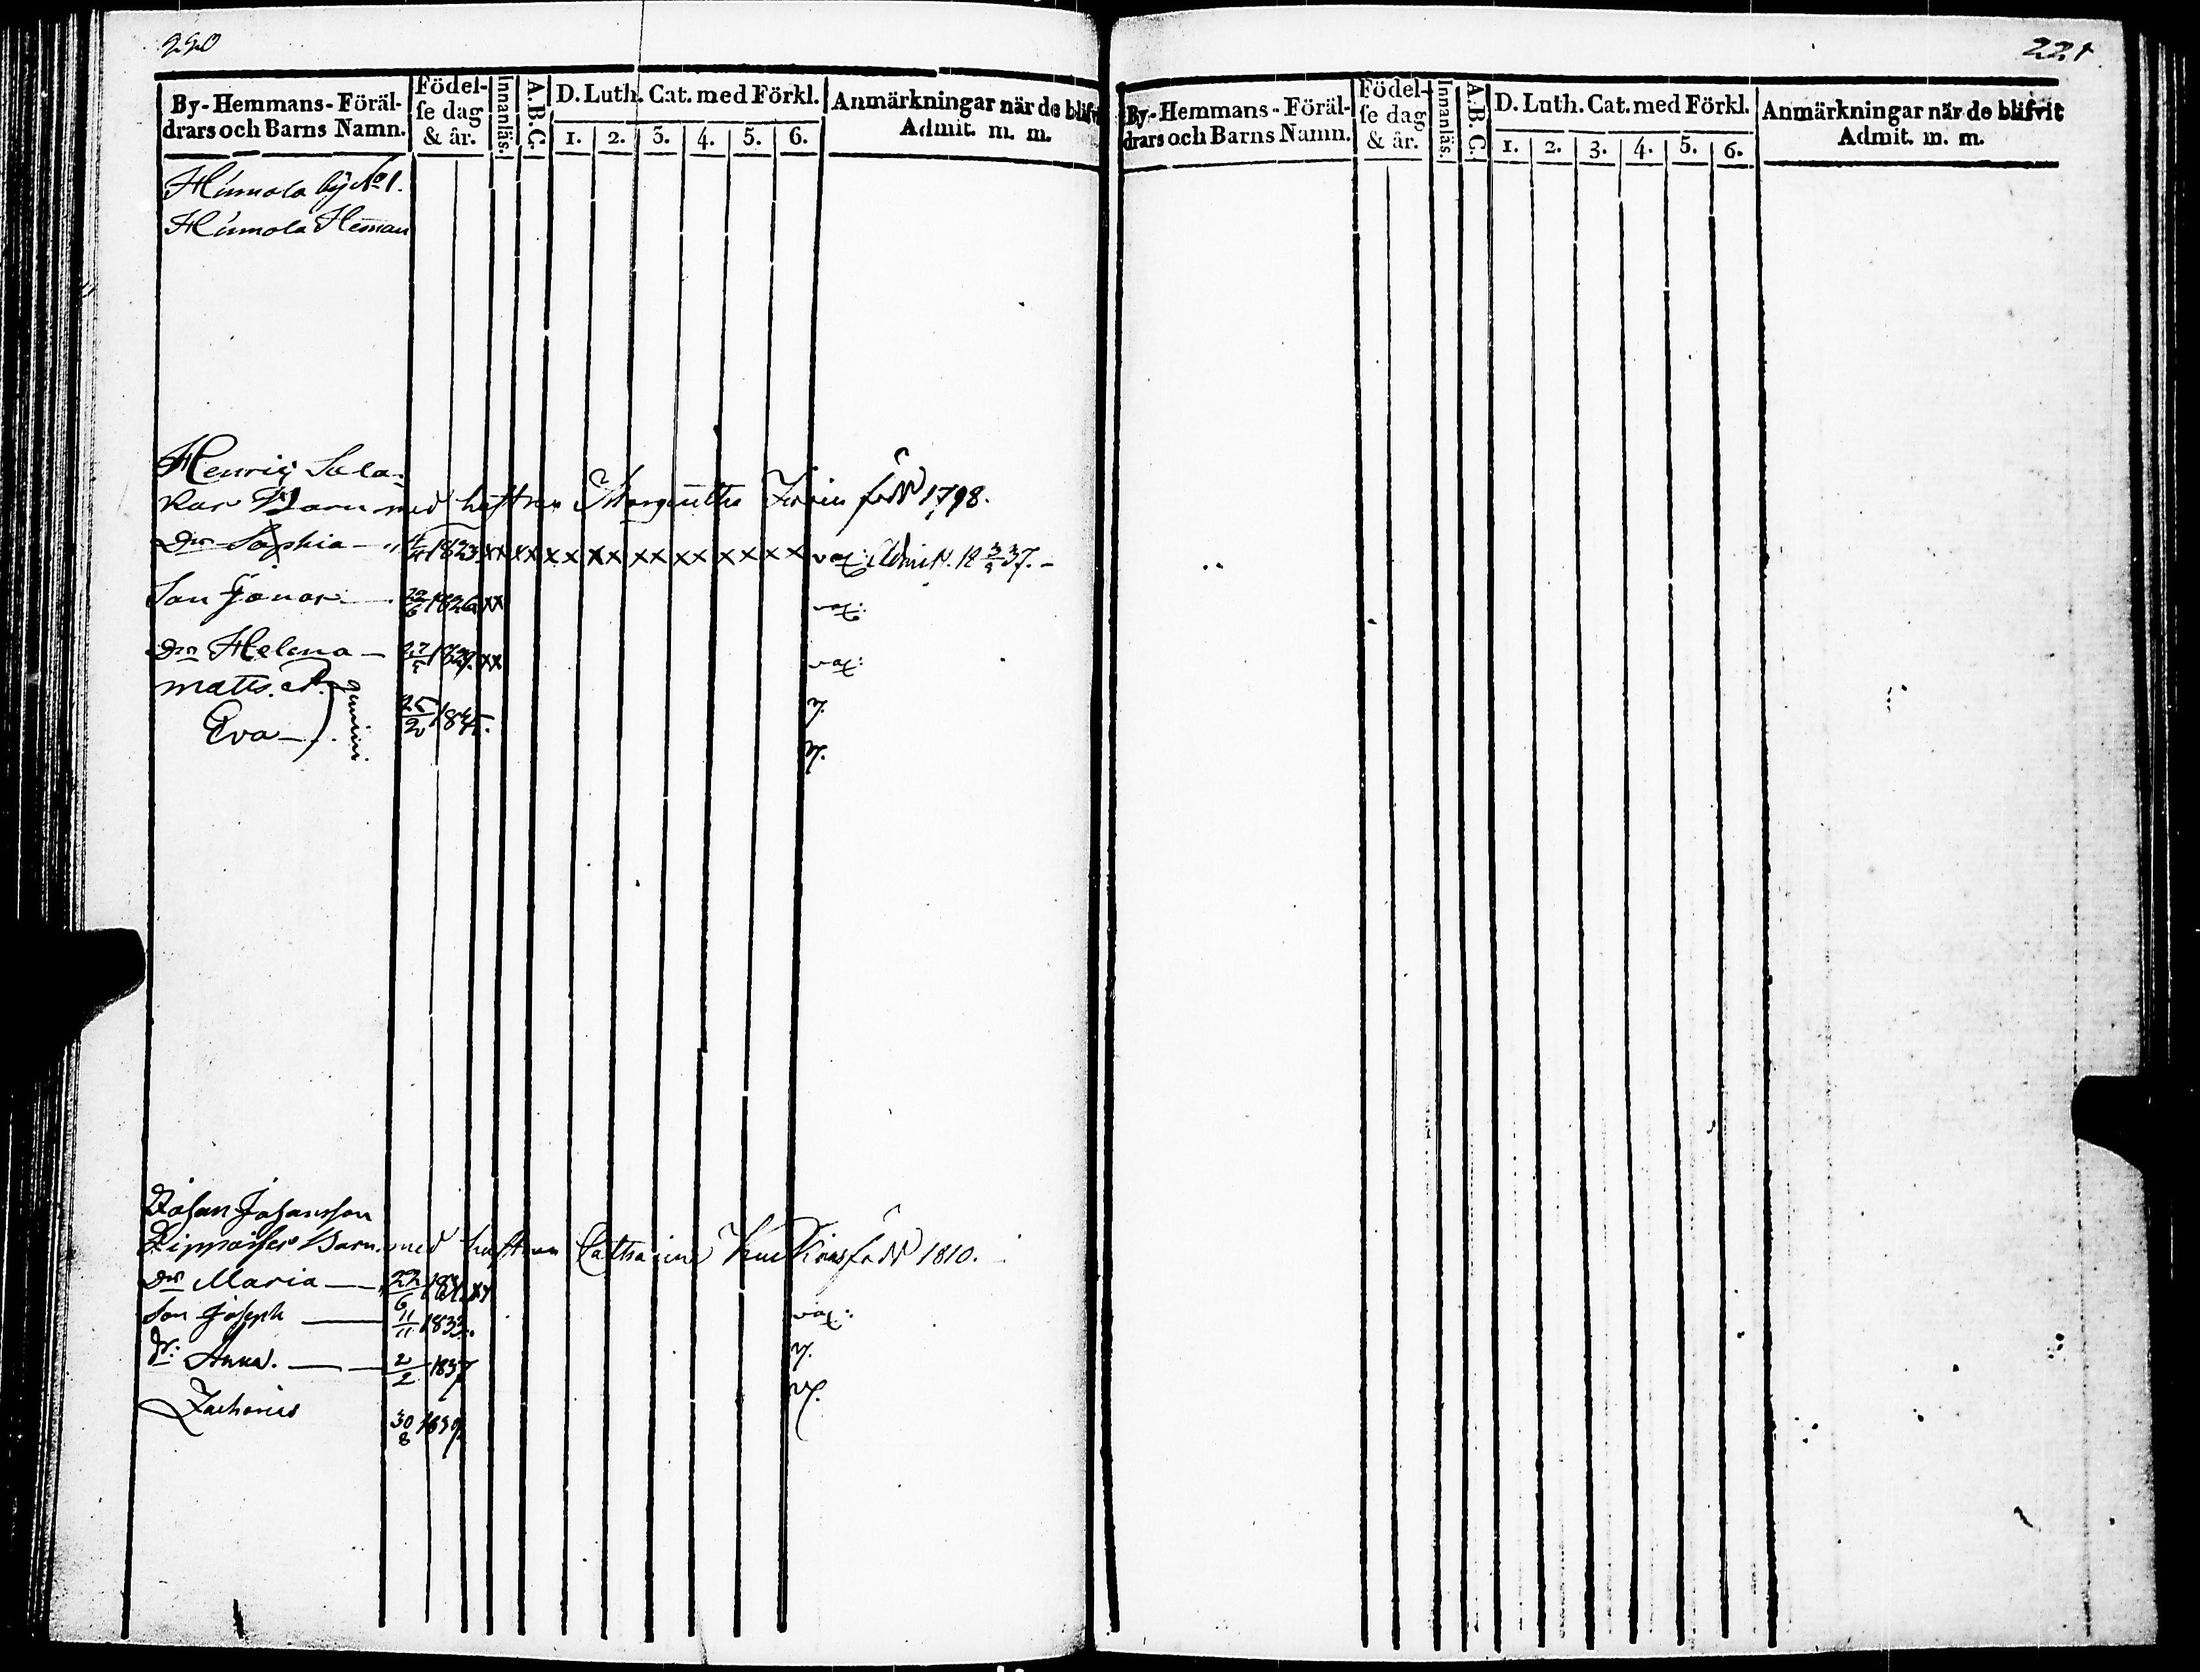 220
By-Hemmans-Föräl-
drars och Barns Namn.
Födel-
se dag
& år.
Innanläs.
A.B.C.
D. Luth. Cat. med Förkl.
1. 2. 3. 4. 5. 6.
Anmärkningar när de blifvit
Admit. m. m.
Humola by No 1.
Humola Heman
Henric Sala-
kas Barn med hustrun född 1798.
Dr Sophia 1823 xx xx xx xx xx xx xx xx vax: Admit.
Son Jonas 1826 xx vax:
Dr Helena 1829. xx vax:
Matts. et gemini 25/2 183
Eva
v.
v.
Johan Johansson
Barn med hustrun Catharina född 1810.
Dr Maria 22/6 xx
Son Joseph 11/11 1833. vax:
Dr: Anna. 2/2 1837 v.
Zacharias 30/8 1839 v.
221
By-Hemmans-Föräl-
drars och Barns Namn.
Födel-
se dag
& år.
Innanläs.
A.B.C.
D. Luth. Cat. med Förkl.
1. 2. 3. 4. 5. 6.
Anmärkningar när de blifvit
Admit. m. m.